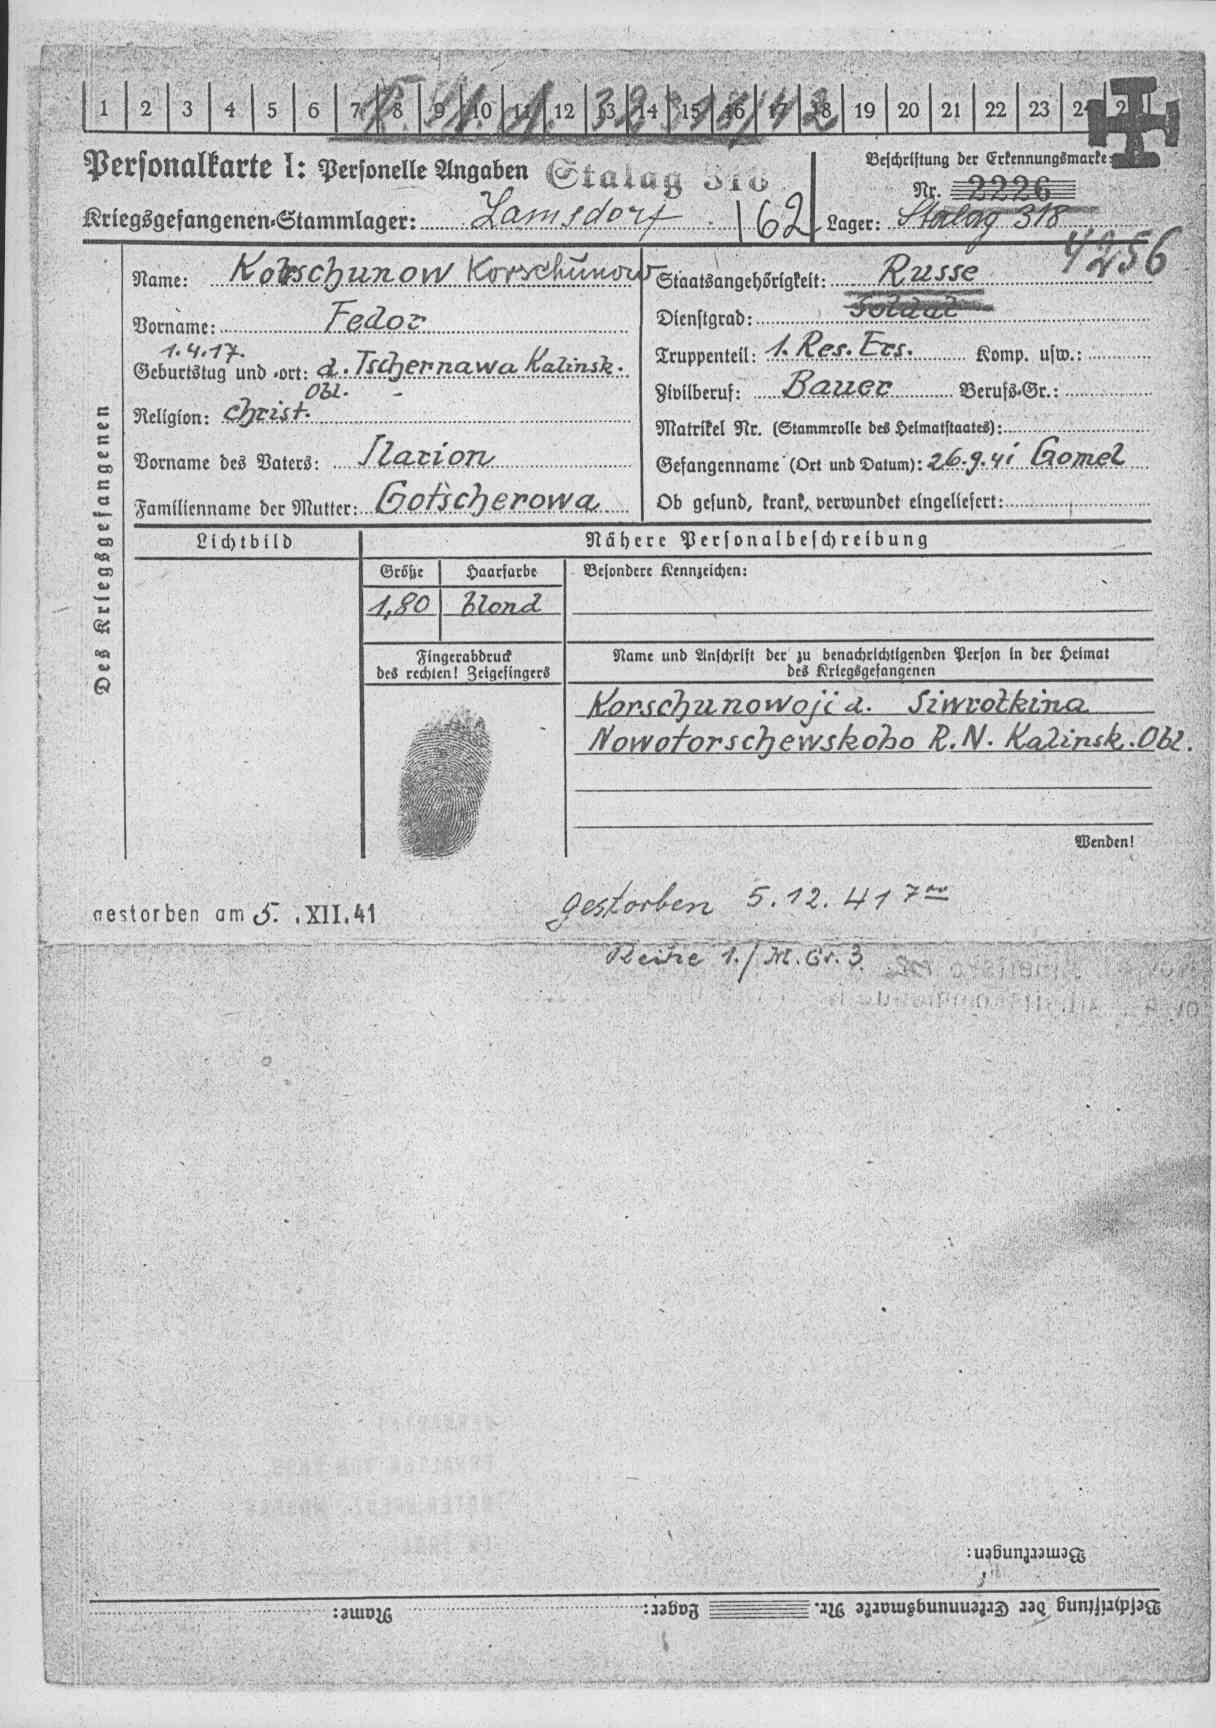 1 2 3 4 5 6 7 8 9 10 11 12 13 14 15 16 17 18 19 20 21 22 23 24
Personalkarte I: Personelle Angaben Stalag 318
Beschriftung der Erkennungsmarke:
Nr. 2226
Kriegsgefangenen-Stammlager: Lamsdorf 162
Lager: Stalag 318
4256
Des Kriegsgefangenen
Name: Korschunow Korschunow
Vorname: Fedor
1.4.17.
Geburtstag und -ort: d. Tschernawa Kalinsk.
Obl.
Religion: christ.
Vorname des Vaters: Ilarion
Familienname der Mutter: Gotscherowa
Staatsangehörigkeit: Russe
Dienstgrad: Soldat
Truppenteil: 1. Res. Ers. Komp. usw.:
Zivilberuf: Bauer Berufs-Gr.:
Matrikel Nr. (Stammrolle des Heimatstaates):
Gefangenname (Ort und Datum): 26.9.41 Gomel
Ob gesund, krank, verwundet eingeliefert:
Lichtbild
Nähere Personalbeschreibung
Größe Haarfarbe Besondere Kennzeichen:
1,80 blond
Fingerabdruck
des rechten! Zeigefingers
Name und Anschrift der zu benachrichtigenden Person in der Heimat
des Kriegsgefangenen
Korschunowoji d. Siwrotkina
Nowotorschewskoho R.N. Kalinsk. Obl.
Wenden!
gestorben am 5. .XII.41
gestorben 5.12.41 7°°
Reihe 1./M.Gr.3
Bemerkungen:
Beschriftung der Erkennungsmarke Nr. Lager: Name: